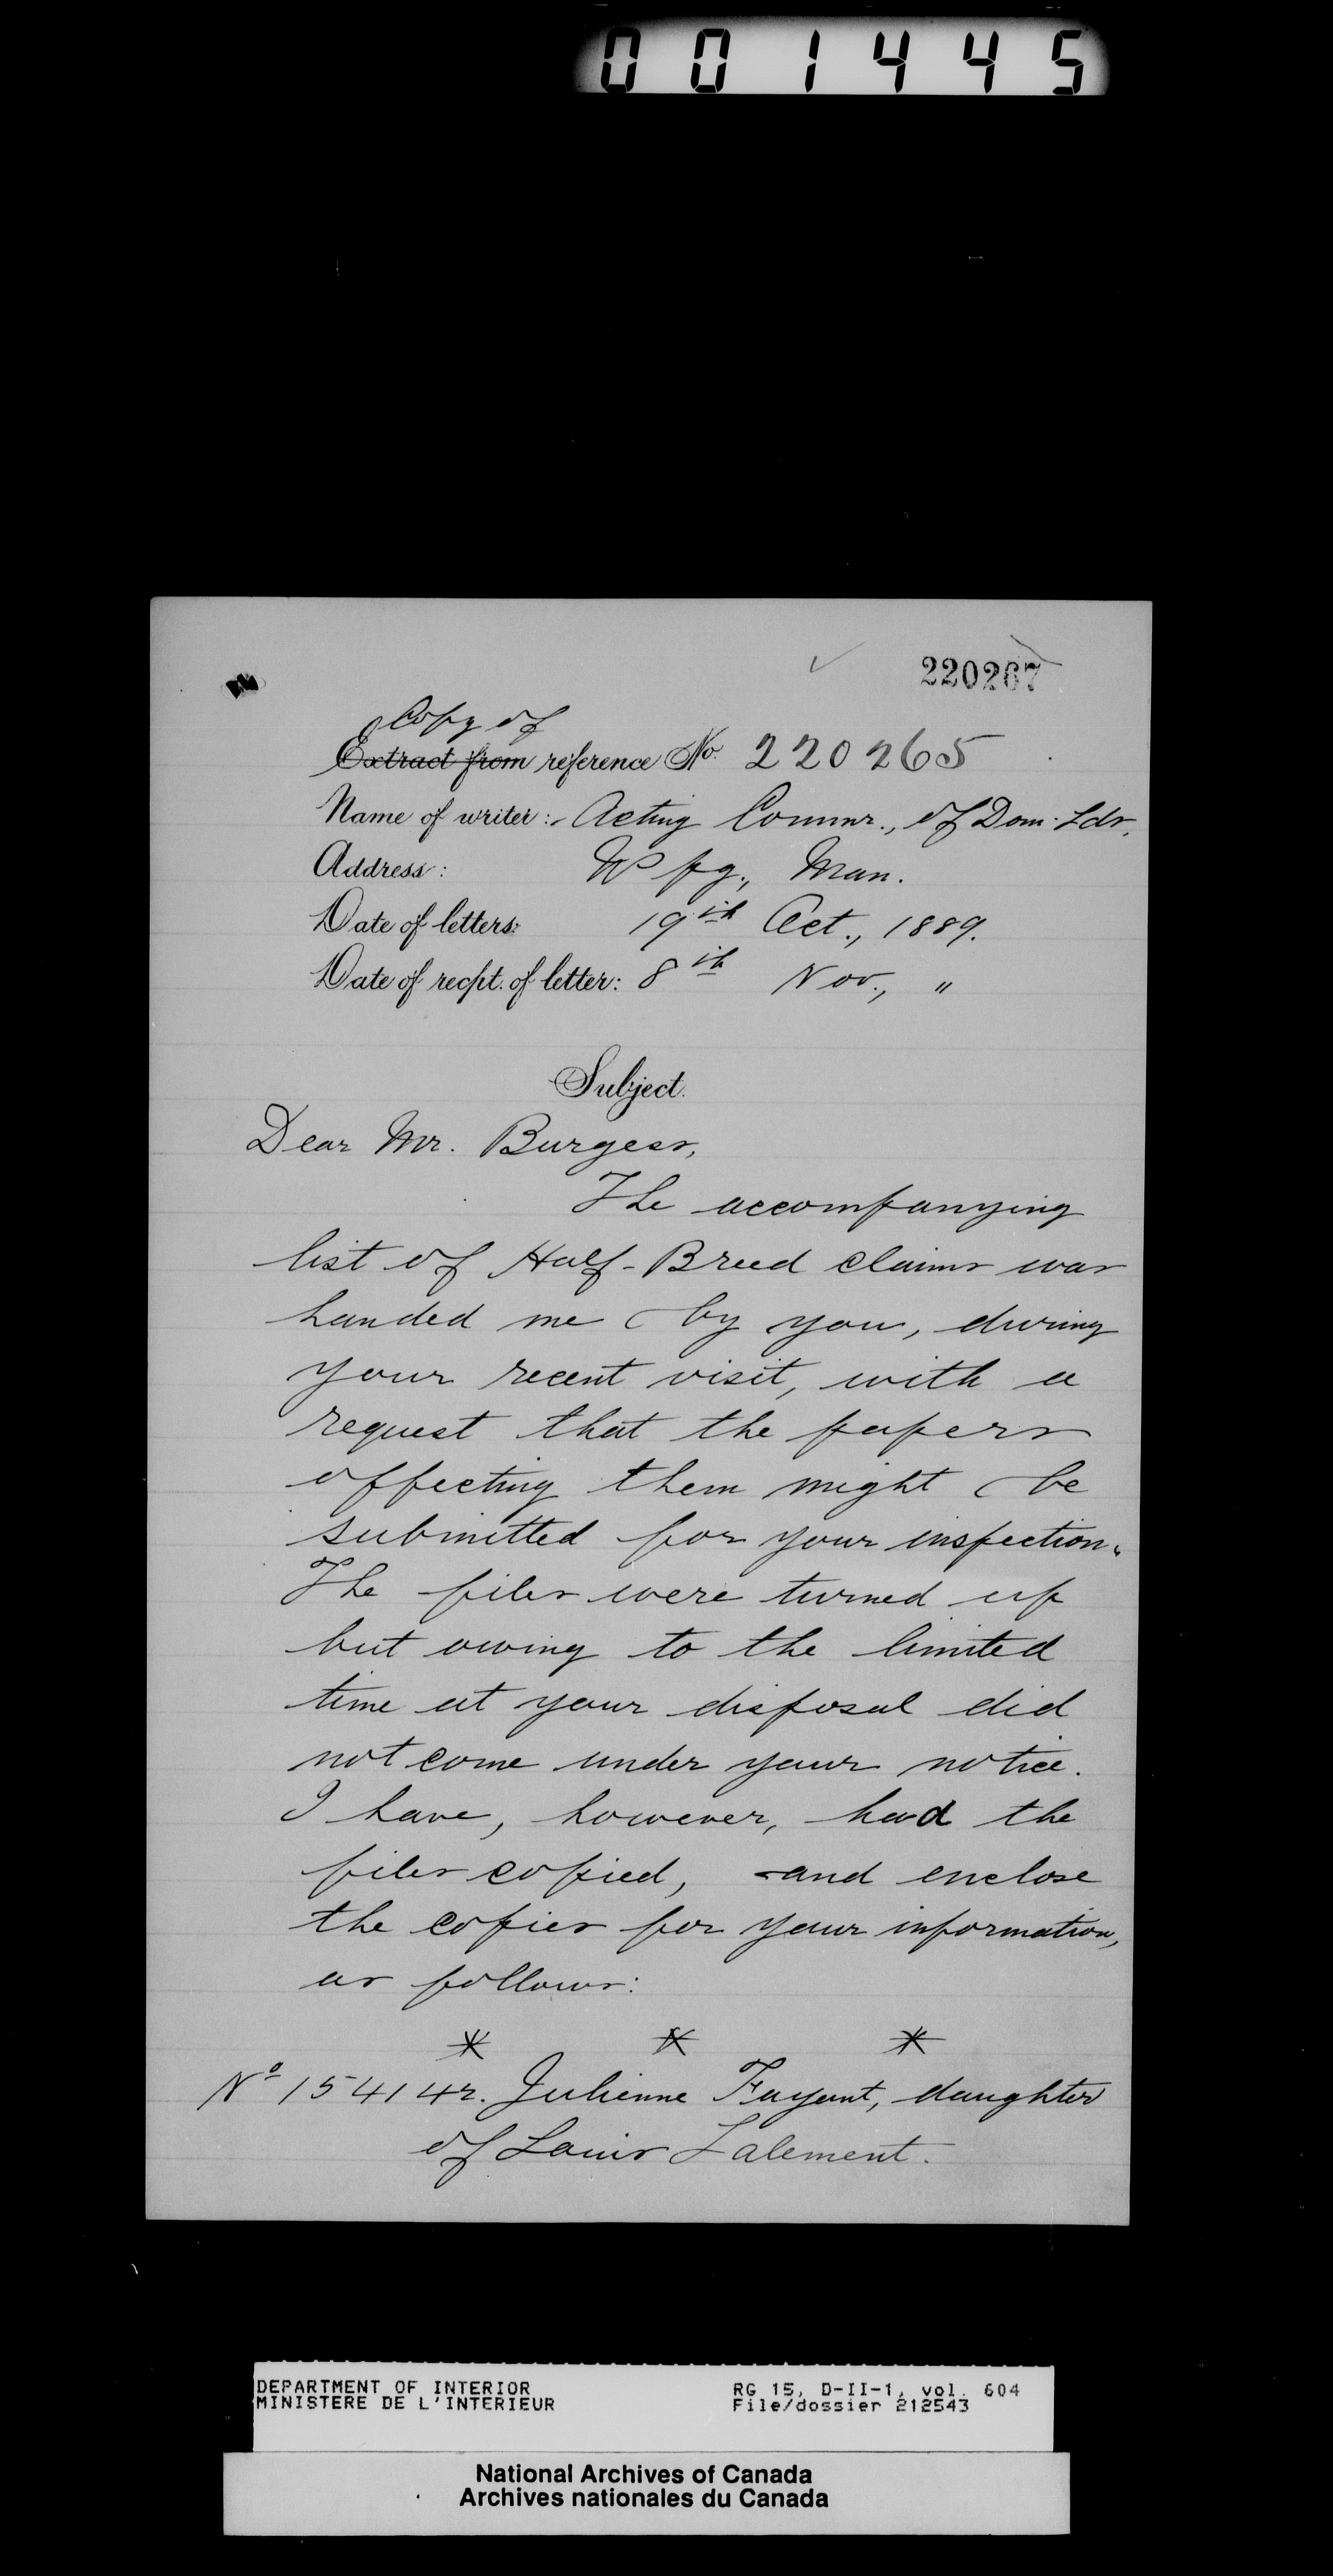 001445
220267
Copy of
Extract from reference No. 220265
Name of writer:- Acting Commr., of Dom. Lds.
Address: Wpg., Man.
Date of letters: 19th Oct., 1889.
Date of recpt. of letter: 8th Nov., "
Subject.
Dear Mr. Burgess,
The accompanying
list of Half-Breed claims was
handed me by you, during
your recent visit, with a
request that the papers
affecting them might be
submitted for your inspection.
The files were turned up
but owing to the limited
time at your disposal did
not come under your notice.
I have, however, had the
files copied, and enclose
the copies for your information,
as follows:
* * *
No 154142. Julienne Fayant, daughter
of Louis Lalement.
DEPARTMENT OF INTERIOR RG 15, D-II-1, vol. 604
MINISTERE DE L'INTERIEUR File/dossier 212543
National Archives of Canada
Archives nationales du Canada